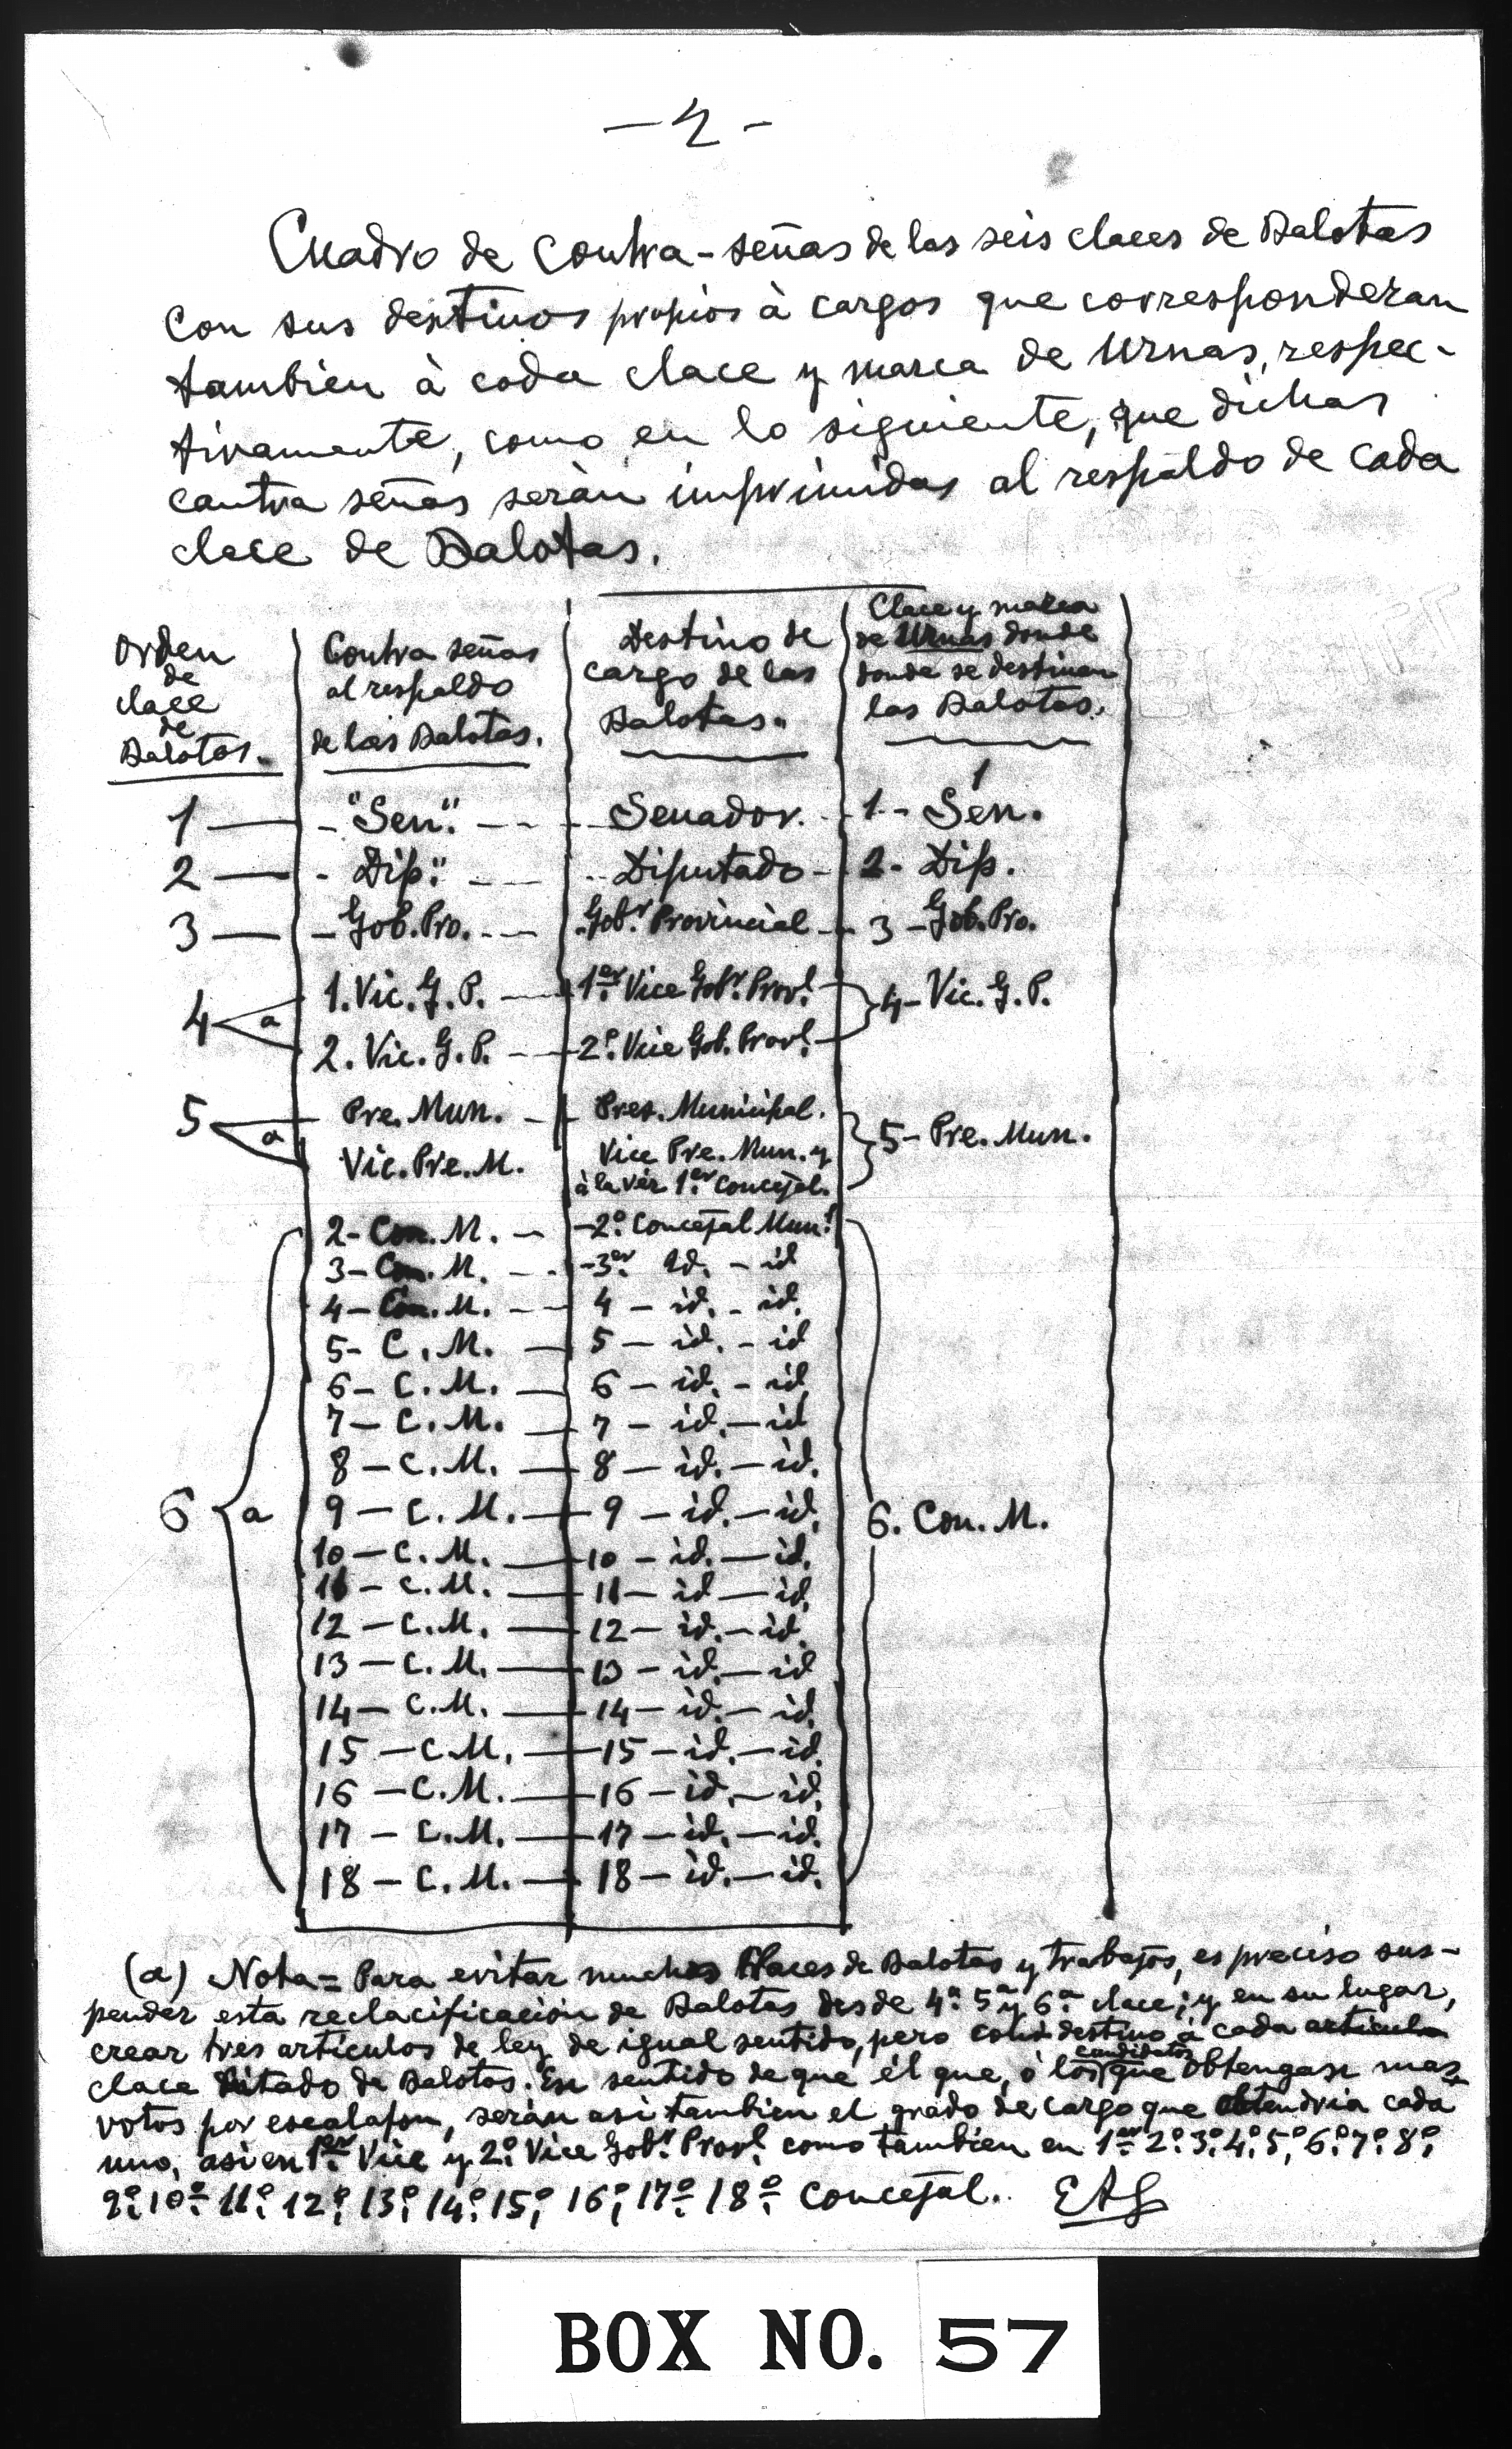 - 4 -
Cuadro de Contra-señas de las seis claces de Balotas
con sus destinos propios à cargos que corresponderan
tambien à cada clace y marca de Urnas, respec-
tivamente, como en lo siguiente, que dichas
contra señas seràn imprimidas al respaldo de cada
clace de Balotas.
Orden de clace de Balotas.
Contra señas al respaldo de las Balotas.
Destino de cargo de las Balotas.
Clace y marca de Urnas donde donde se destinan las Balotas.
1 — - "Sen". - - - Senador. - 1 - Sen.
2 — - Dip." - - - Diputado - 2 - Dip.
3 — - Gob. Pro. - - - Gobr. Provincial - 3 - Gob. Pro.
4 a 1. Vic. G. P. — 1er. Vice Gobr. Provl. 4 - Vic. G. P.
2. Vic. G. P. - - 2º. Vice Gob. Provl.
5 a Pre. Mun. - Pres. Municipal. 5 - Pre. Mun.
Vic. Pre. M. Vice Pre. Mun. y
à la vez 1er. Concejal.
2 - Con. M. - - 2º. Concejal Munl.
3 - Con. M. - - - 3er. Id. - id
4 - Con. M. - - 4 - id. - id.
5 - C. M. - 5 - id. - id
6 - C. M. - 6 - id. - id
7 - C. M. - 7 - id. - id
8 - C. M. - 8 - id. - id.
6 a 9 - C. M. - 9 - id. - id. 6. Con. M.
10 - C. M. - 10 - id. - id.
11 - C. M. - 11 - id - id.
12 - C. M. - 12 - id. - id.
13 - C. M. - 13 - id. - id
14 - C. M. - 14 - id. - id.
15 - C. M. - 15 - id. - id.
16 - C. M. - 16 - id. - id.
17 - C. M. - 17 - id. - id.
18 - C. M. - 18 - id. - id.
(a) Nota = Para evitar muchas claces de Balotas y trabajos, es preciso sus-
pender esta reclacificaciòn de Balotas desde 4ª. 5ª y 6ª. clace; y en su lugar,
crear tres articulos de ley de igual sentido, pero destino à cada
clace de Balotas. En sentido de que él que, ò los candidatos que obtengase mas
votos por escalafon, seràn asi tambien el grado de cargo que obtendria cada
uno, asi en 1er. Vice y 2º. Vice Gobr. Provl. como tambien en 1er. 2º. 3º. 4º. 5º, 6º. 7º. 8º,
9º. 10º. 11º. 12º, 13º, 14º. 15º, 16º, 17º. 18º. Concejal. EAG
BOX NO. 57